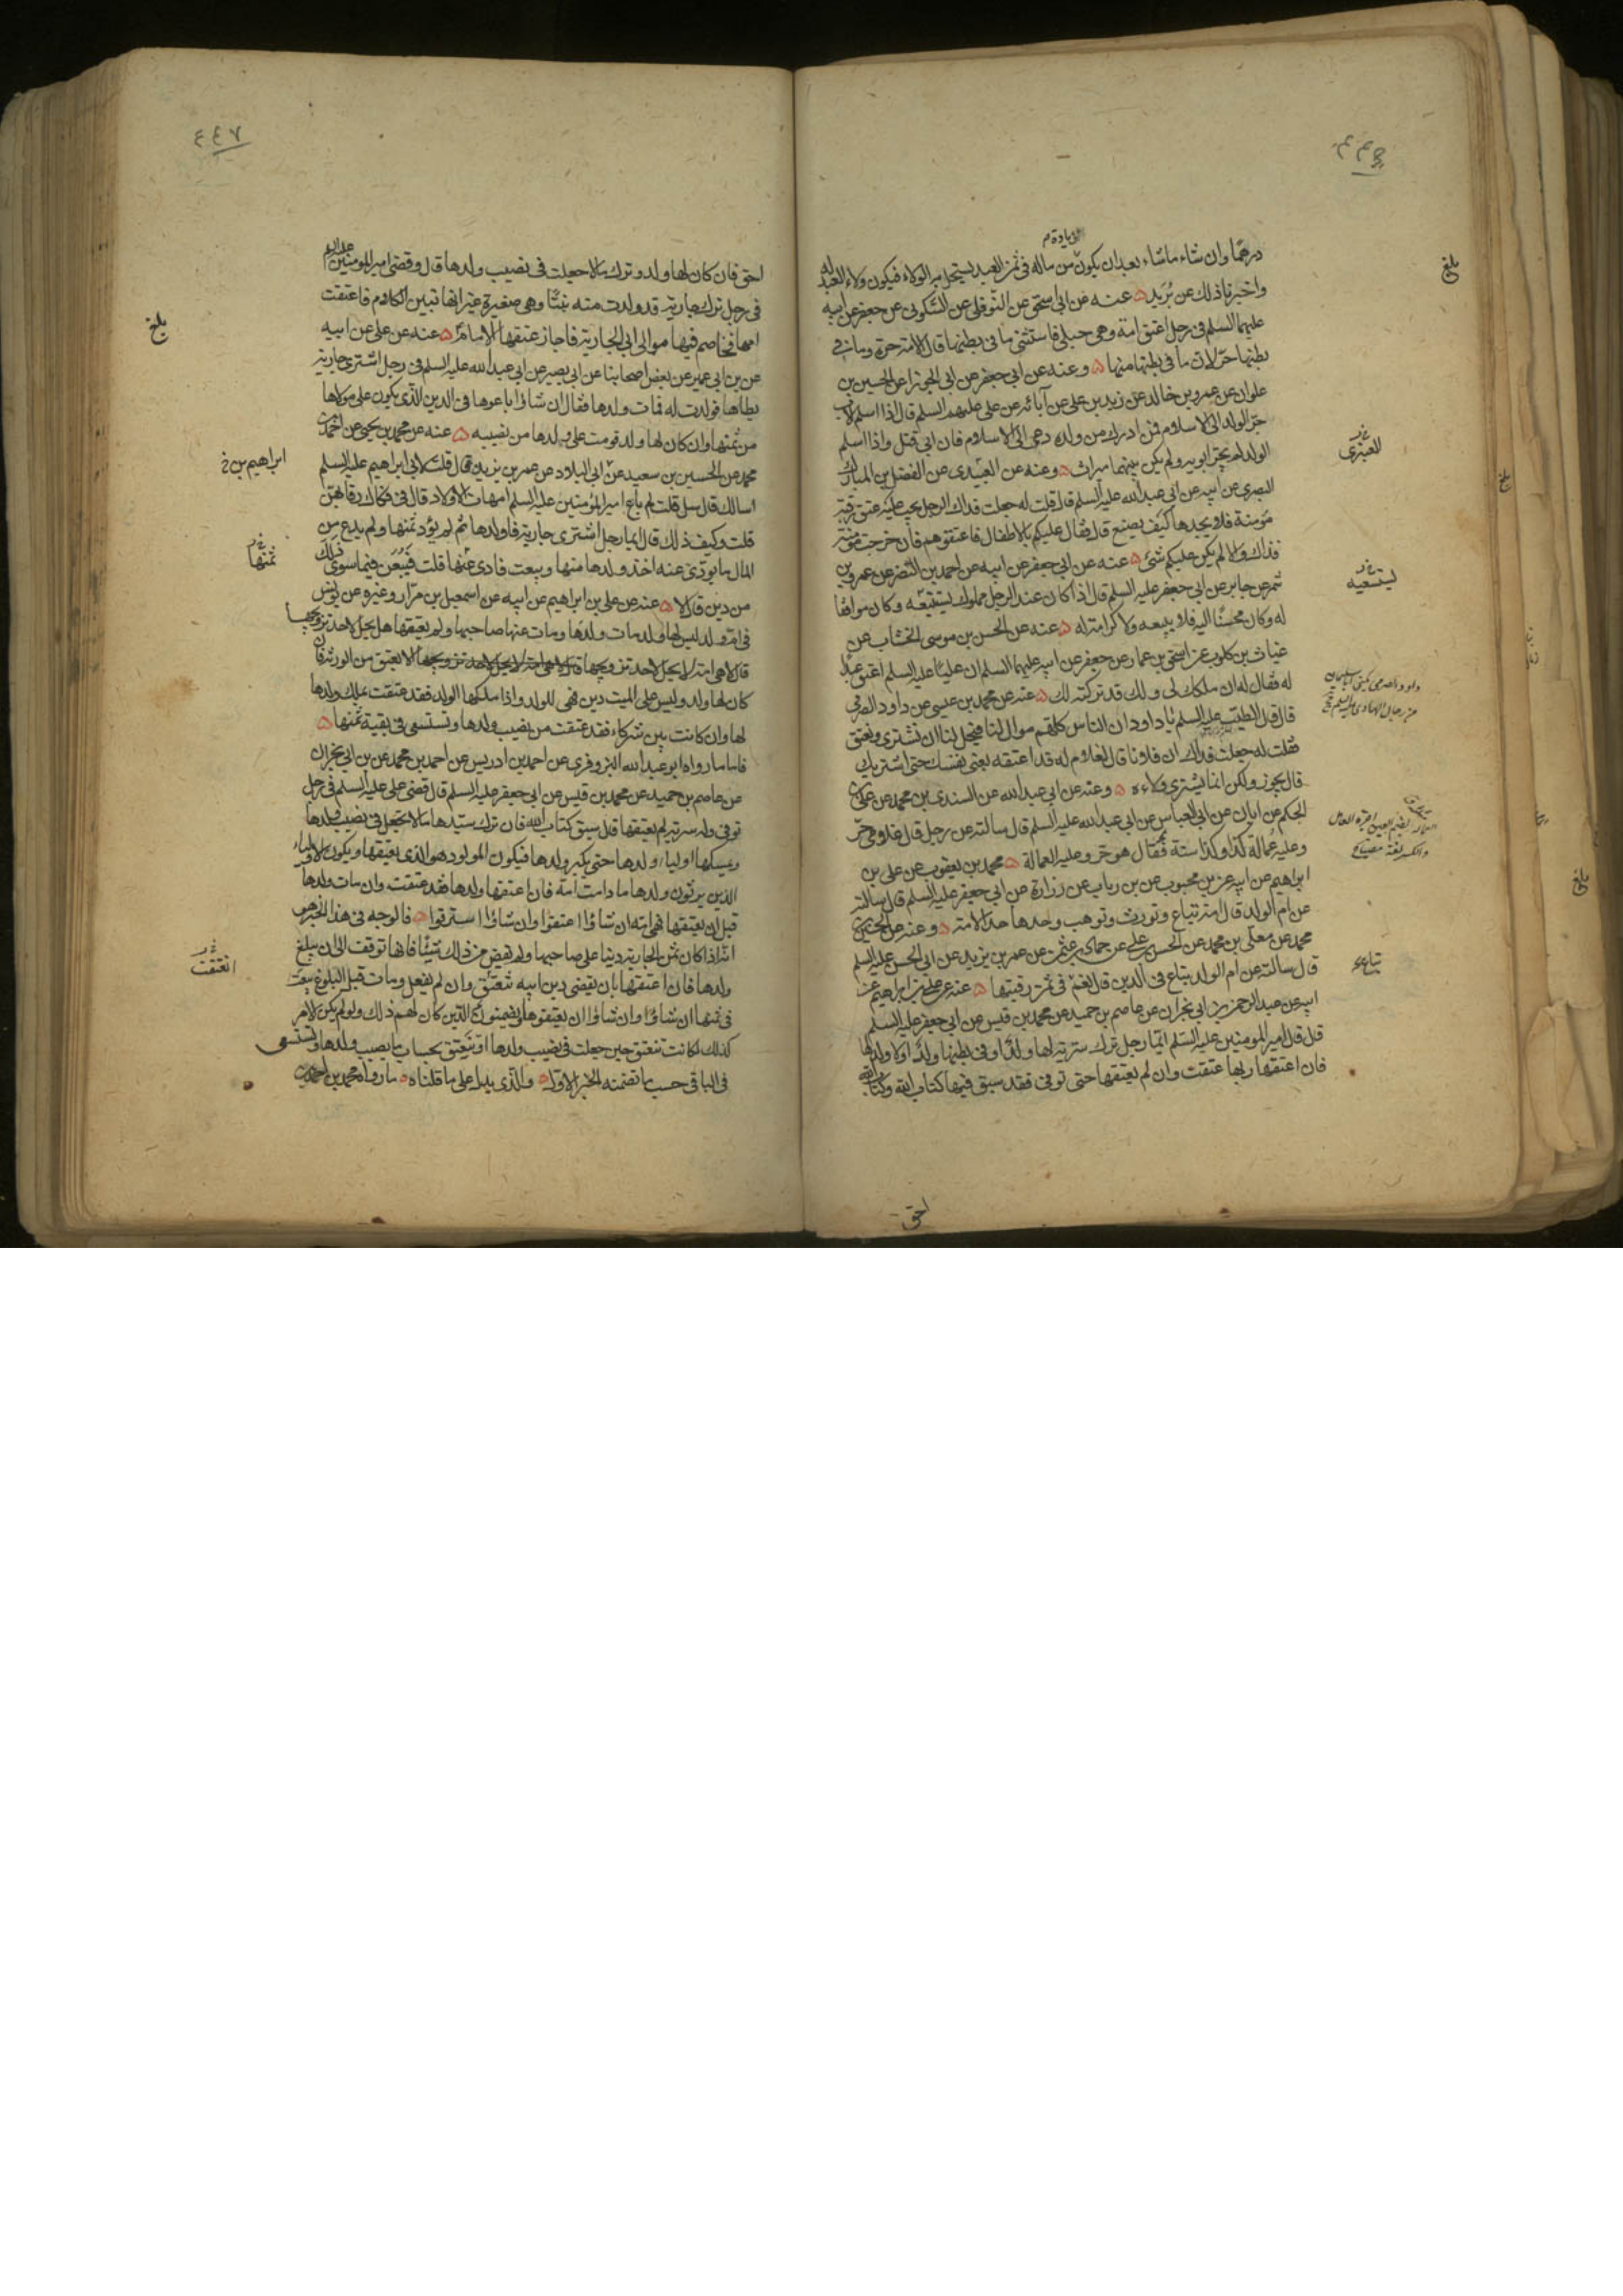 درهما وان شاء ماشاء بعد ان يكون من ماله في ثمن العبد يستحل به الولاء فيكون ولاء العبد له
زيادة م
واخبرنا ذلك عن بُرَيد عنه عن ابي اسحق عن النوفلي عن السكوني عن جعفر عن ابيه
عليهما السلم في رجل اعتق امة وهي حبلى فاستثنى ما في بطنها قال الامة حرة وما في
بطنها حر لان ما في بطنها منها وعنه عن ابي جعفر عن ابي الجوزا عن الحسين بن
علوان عن عمرو بن خالد عن زيد بن علي عن آبائه عن علي عليهم السلم قال اذا اسلم الاب
جر الولد الى الاسلام فمن ادرك من ولده دعي الى الاسلام فان ابى قتل واذا اسلم
الولد لم يجر ابويه ولم يكن بينهما ميراث وعنه عن العبيدي عن الفضل بن المبارك
البصري عن ابيه عن ابي عبد الله عليه السلم قال قلت له جعلت فداك الرجل يجب عليه عتق رقبة
مؤمنة فلا يجدها كيف يصنع قال فقال عليكم بالاطفال فاعتقوهم فان خرجت مؤمنة
فذاك والا لم يكن عليكم شئ عنه عن ابي جعفر عن ابيه عن احمد بن النضر عن عمرو بن
شمر عن جابر عن ابي جعفر عليه السلم قال اذا كان عند الرجل مملوك يستتبعه وكان موافقا
له وكان محسنا اليه فلا يبيعه ولا كرامة له عنه عن الحسن بن موسى الخشاب عن
غياث بن كلوب عن اسحق بن عمار عن جعفر عن ابيه عليهما السلم ان عليا عليه السلم اعتق عبدا
له فقال له ان ملكك لي ولك قد تركته لك عنه عن محمد بن عيسى عن داود الصرمي
قال قال الطيب عليه السلم يا داود ان الناس كلهم موال لنا فيحل لنا ان نشتري ونعتق
فقلت له جعلت فداك ان فلانا قال لغلام له قد اعتقه بعني نفسك حتى اشتريك
قال يجوز ولكن انما يشتري ولاءه وعنه عن ابي عبد الله عن السندي بن محمد عن علي بن
الحكم عن ابان عن ابي العباس عن ابي عبد الله عليه السلم قال سالته عن رجل قال غلامي حر
وعليه عمالة كذا وكذا سنة فقال هو حر وعليه العمالة محمد بن يعقوب عن علي بن
ابراهيم عن ابيه عن بن محبوب عن بن رياب عن زرارة عن ابي جعفر عليه السلم قال سالته
عن ام الولد قال امة تباع وتورث وتوهب وحدها حد الامة وعنه عن الحسين بن
محمد عن معلى بن محمد عن الحسن بن علي عن حماد بن عثمن عن عمر بن يزيد عن ابي الحسن عليه السلم
قال سالته عن ام الولد تباع في الدين قال نعم في ثمن رقبتها عنه عن علي بن ابراهيم عن
ابيه عن عبد الرحمن بن ابي نجران عن عاصم بن حميد عن محمد بن قيس عن ابي جعفر عليه السلم
قال قال امير المومنين عليه السلم ايما رجل ترك سرية لها ولد او في بطنها ولد او لا ولد لها
فان اعتقها ربها عتقت وان لم يعتقها حتى توفي فقد سبق فيها كتاب الله وكتاب الله
احق
بلغ
يستتبعيه
تباع
٤٤٧
احق فان كان لها ولد وترك مالا جعلت في نصيب ولدها قال وقضى امير المومنين عليه السلم
في رجل ترك جارية قد ولدت منه بنتا وهي صغيرة غير انها تبين الكلام فاعتقت
امها فخاصم فيها موالى ابي الجارية فاجاز عتقها الامام عنه عن علي عن ابيه
عن بن ابي عمير عن بعض اصحابنا عن ابي بصير عن ابي عبد الله عليه السلم في رجل اشترى جارية
يطاها فولدت له فمات ولدها فقال ان شاؤا باعوها في الدين الذي يكون على مولاها
من ثمنها وان كان لها ولد قومت على ولدها من نصيبه عنه عن محمد بن يحيى عن احمد بن
محمد عن الحسين بن سعيد عن ابي البلاد عن عمر بن يزيد قال قلت لابي ابراهيم عليه السلم
اسالك قال سل قلت لم باع امير المؤمنين عليه السلم امهات الاولاد قال في فكاك رقابهن
قلت وكيف ذلك قال ايما رجل اشترى جارية فاولدها ثم لم يؤد ثمنها ولم يدع من
المال ما يودى عنه اخذ ولدها منها وبيعت فادى عنها قلت فيبعن فيما سوى ذلك
من دين قال لا عنه عن علي بن ابراهيم عن ابيه عن اسمعيل بن مرار وغيره عن يونس
في ام ولد ليس لها ولد مات ولدها ومات عنها صاحبها ولم يعتقها هل يحل لاحد تزويجها
قال لا هي امة لا يحل لاحد تزويجها الا بعتق من الورثة فان
كان لها ولد وليس على الميت دين فهي للولد واذا ملكها الولد فقد عتقت بملك ولدها
لها وان كانت بين شركاء فقد عتقت من نصيب ولدها وتستسعى في بقية ثمنها
فاما ما رواه ابو عبد الله البزوفري عن احمد بن ادريس عن احمد بن محمد عن بن ابي نجران
عن عاصم بن حميد عن محمد بن قيس عن ابي جعفر عليه السلم قال قضى علي عليه السلم في رجل
توفي وله سرية لم يعتقها قال سبق كتاب الله فان ترك سيدها مالا تجعل في نصيب ولدها
ويمسكها اولياء ولدها حتى يكبر ولدها فيكون المولود هو الذي يعتقها ويكون الاولياء
الذين يرثون ولدها ما دامت امة فان اعتقها ولدها فقد عتقت وان مات ولدها
قبل ان يعتقها فهي امة ان شاؤا اعتقوا وان شاؤا استرقوا فالوجه في هذا الخبر هو
انه اذا كان ثمن الجارية دينا على صاحبها ولم يقض من ذلك شيئا فانها توقف الى ان يبلغ
ولدها فان اعتقها بان يقضي دين ابيه تنعتق وان لم يفعل ومات قبل البلوغ بيعت
في ثمنها ان شاؤا وان شاؤا ان يعتقوها ويضمنوا الدين كان لهم ذلك ولو لم يكن الامر
كذلك لكانت تنعتق حين جعلت في نصيب ولدها او تنعتق بحساب ما يصيب ولدها وتستسعى
في الباقي حسب ما تضمنه الخبر الاول والذي يدل على ما قلناه ما رواه محمد بن احمد بن
بلغ
ابراهيم بن خ
ثمنها
انعتقت